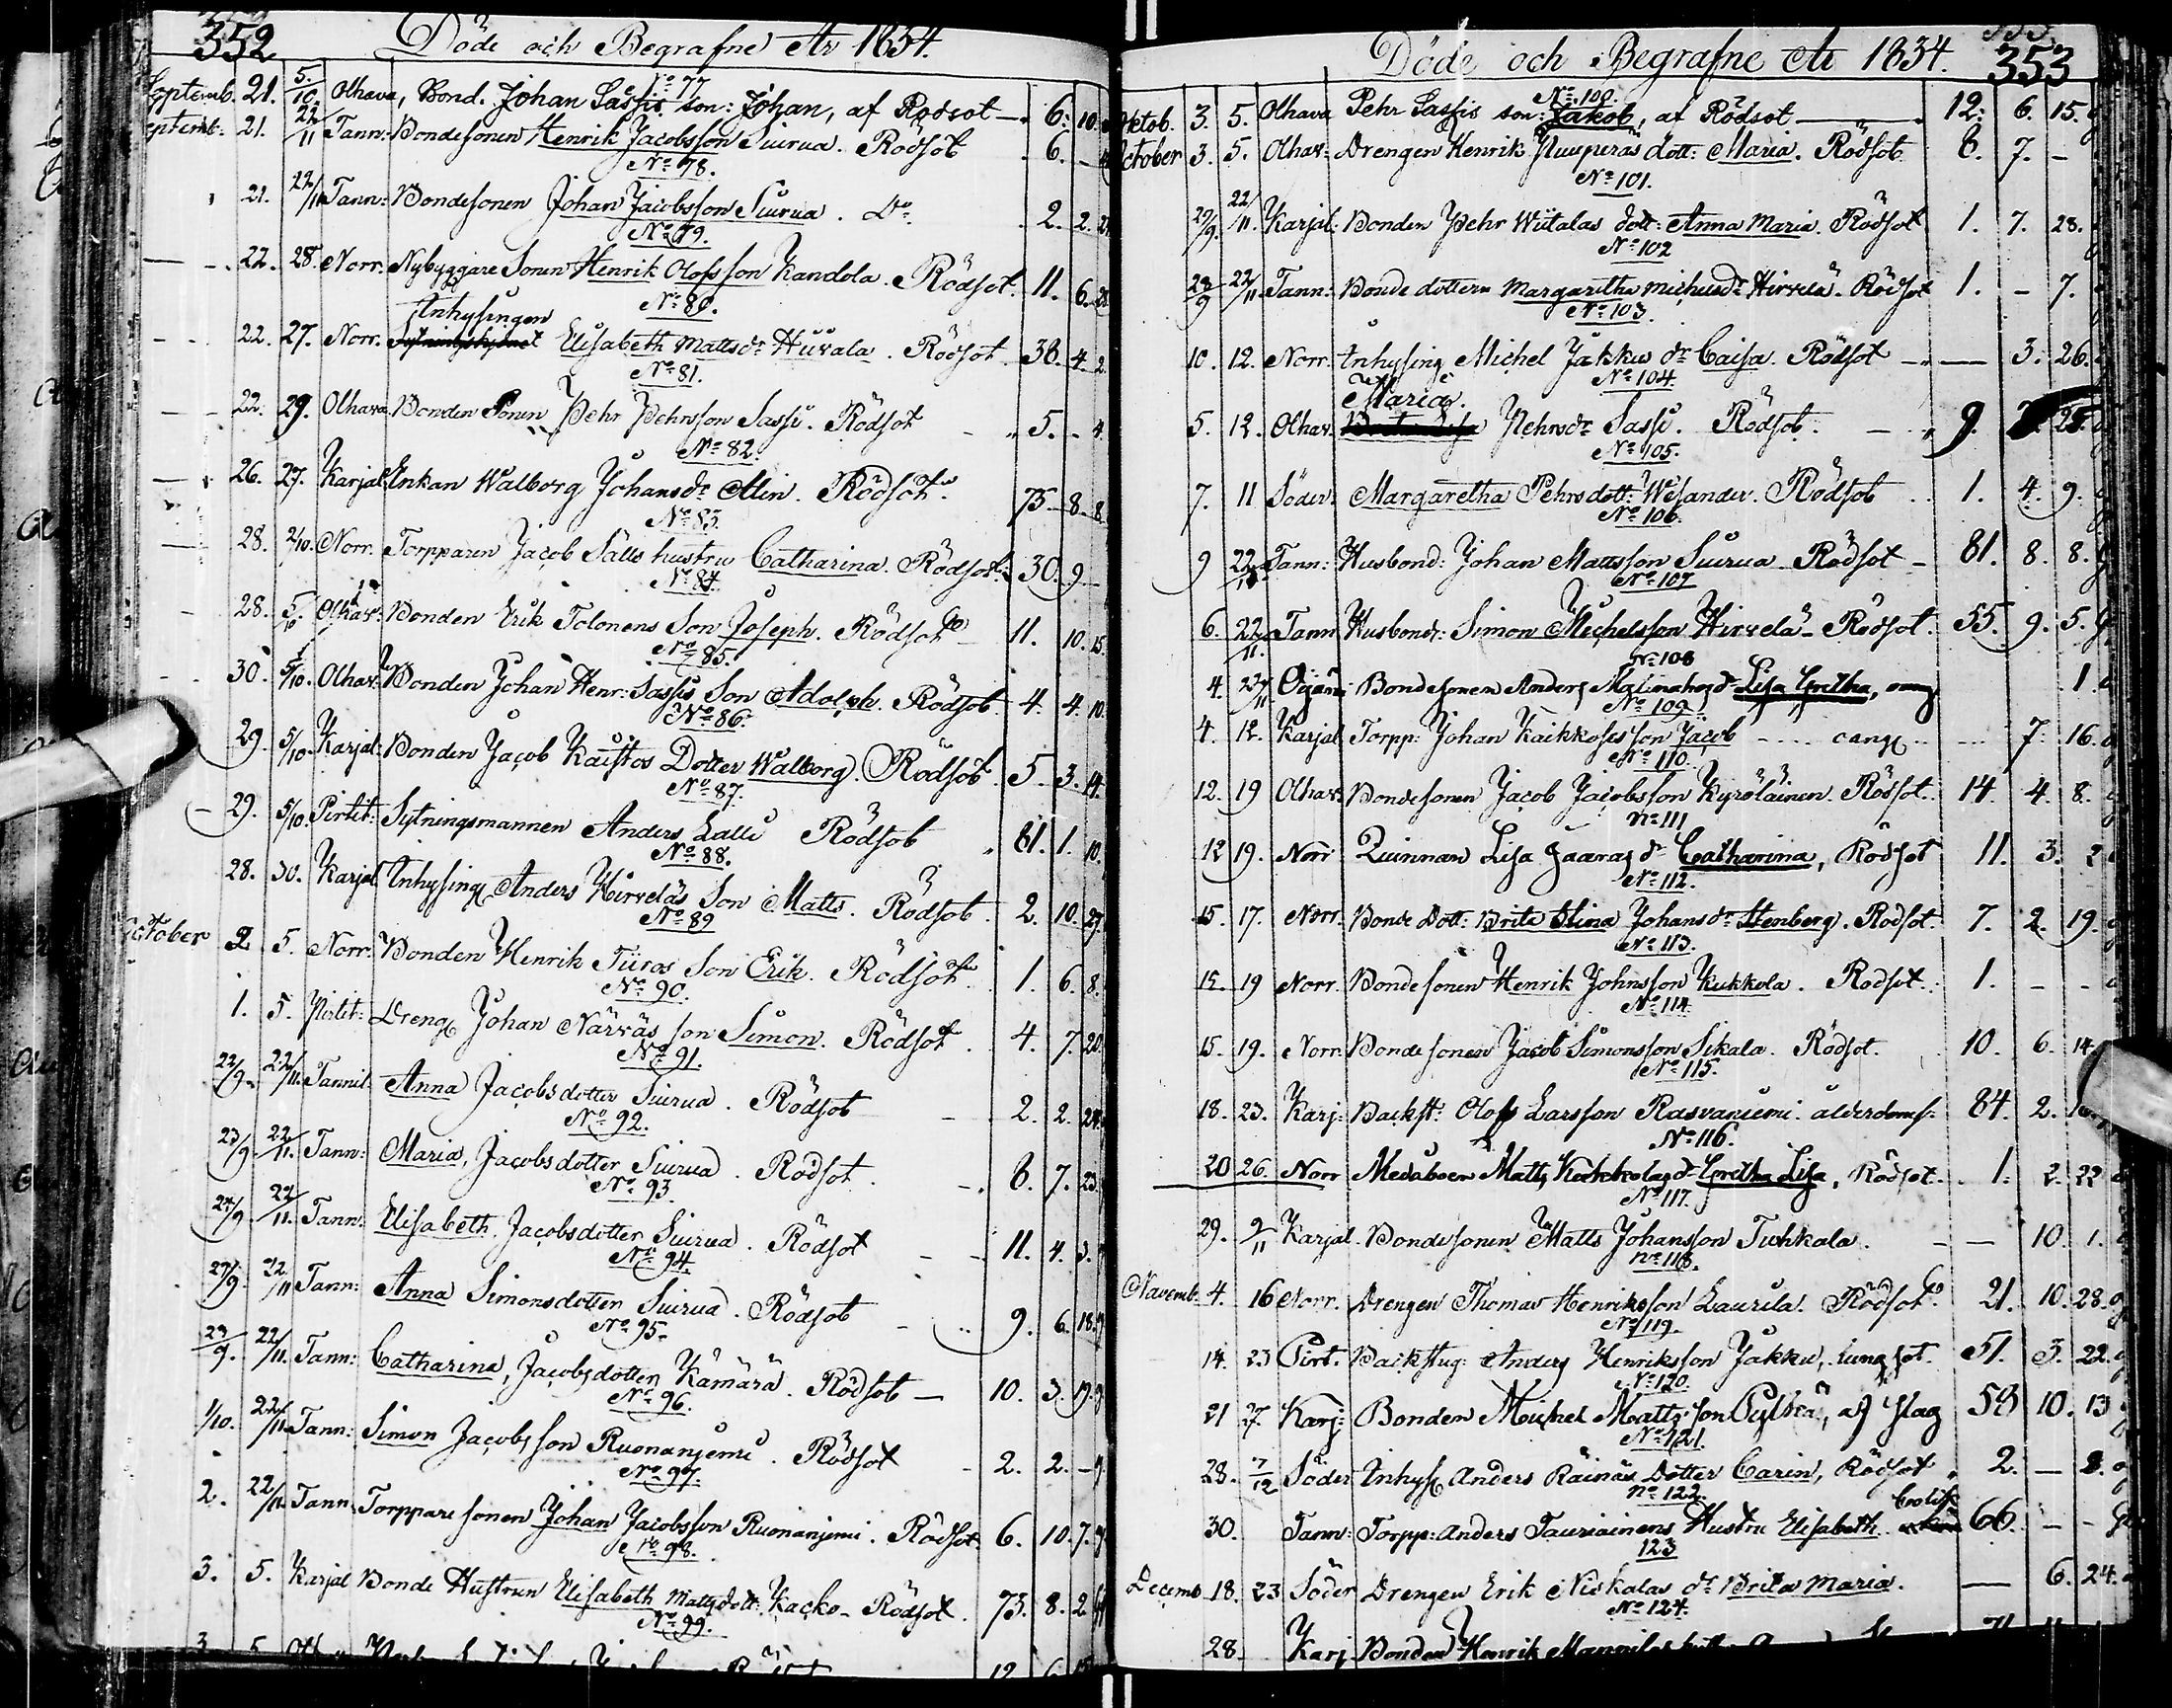 352 Döde och Begrafne År 1834.
No 77
Septemb. 21. 5/10. Olhava, Bond. Johan Sassis son: Johan, af Rödsot 6. 10.
Septemb: 21. 22/11 Tann: Bondesonen Henrik Jacobsson Siurua. Rödsot 6. -
No 78.
21. 22/11 Tann: Bondesonen Johan Jacobsson Siurua. Do. 2. 2.
No 79.
22. 28. Norr. Nybyggare Sonen Henrik Olofsson Kandola. Rödsot. 11. 6.
No 80.
Inhysingen
22. 27. Norr. Elisabeth Mattsdr Huvala. Rödsot. 38. 4. 2.
No 81.
22. 29. Olhava Bonden Sonen Pehr Pehrsson Sassi. Rödsot 5. - 4.
No 82.
26. 27. Karjal. Enkan Walborg Johansdr Alin. Rödsot. 75. 8. 8.
No 83.
28. 2/10. Norr. Torpparen Jacob Sälls hustru Catharina. Rödsot. 30. 9 -
No 84.
28. 5/10. Olhav. Bonden Erik Tolonens Son Joseph. Rödsot 11. 10. 15.
No 85.
30. 5/10. Olhav. Bonden Johan Henr: Sassis Son Adolph. Rödsot. 4. 4. 10.
No 86.
29. 5/10. Karjal: Bonden Jacob Kaistos Dotter Walborg. Rödsot. 5. 3. 14.
No 87.
29. 5/10. Pirtit: Sytningsmannen Anders Lalli Rödsot 81. 1. 10.
No 88.
28. 30. Karjal Inhysing Anders Hirveläs Son Matts. Rödsot. 2. 10. 27.
No 89
October 2. 5. Norr. Bonden Henrik Tiiros Son Erik. Rödsot. 1. 6. 8.
No 90.
1. 5. Pirtit: Dreng Johan Närväs son Simon. Rödsot. 4. 7. 20.
No 91.
22/9. 22/11. Tannil. Anna Jacobsdotter Siurua. Rödsot 2. 2. 24.
No 92.
23/9. 22/11. Tann: Maria, Jacobsdotter Siurua. Rödsot. 8. 7. 23.
No 93.
24/9 22/11. Tann: Elisabeth. Jacobsdotter Siurua. Rödsot 11. 4. 3.
No 94.
27/9. 22/11 Tann: Anna Simonsdotter Siurua. Rödsot 9. 6. 18.
No 95.
29/9. 22/11. Tann: Catharina, Jacobsdotter Kämärä. Rödsot 10. 3. 19.
No 96.
1/10. 22/11 Tann: Simon Jacobsson Ruonanjemi. Rödsot 2. 2. -
No 97.
2. 22/11 Tann. Torppare sonen Johan Jacobsson Ruonanjemi. Rödsot 6. 10. 7.
No 98.
3. 5. Karjal Bonde Hustrun Elisabeth Mattsdott: Kacko. Rödsot. 73. 8. 2.
No 99.
3. 5.
353 Döde och Begrafne År 1834.
No 100.
Oktob. 3. 5. Olhava Pehr Sassis son: Jakob, af Rödsot 12. 6. 15.
October 3. 5. Olhav: Drengen Henrik Puuperäs dott: Maria. Rödsot. 8. 7. -
No 101.
29/9. 22/11. Karjal: Bonden Pehr Wiitalas dott: Anna Maria. Rödsot 1. 7. 28.
No 102
29/9 22/11. Tann: Bonde dottern Margaretha Michelsdr Hirvelä. Rödsot 1. - 7.
No 103.
10. 12. Norr. Inhysing Michel Jakku dr Caisa. Rödsot - 3. 26.
No 104.
Maria.
5. 12. Olhav. Pehrsdr Sassi. Rödsot. 9. 25.
No 105.
7. 11 Söder. Margaretha Pehrsdott: Wesander. Rödsot 1. 4. 9.
No 106.
9 22/11. Tann: Husbond: Johan Mattsson Siurua. Rödsot - 81. 8. 8.
No 107
6. 22/11. Tann Husbond: Simon Michelsson Hirvelä. Rödsot. 55. 9. 5.
No 108
4. 22/11 Bondesonen Anders dr Lisa Gretha, 1.
No 109.
4. 12. Karjal Torpp: Johan Kaikkoses son Jacob 7. 16.
No 110.
12. 19 Olhav. Bondesonen Jacob Jacobsson Kyröläinen. Rödsot. 14. 4. 8.
No 111
12 19. Norr Quinnan Lisa Jaaras dr Catharina, Rödsot 11. 3. 2
No 112.
15. 17. Norr. Bonde Dott: Brita Stina Johansdr Stenberg. Rödsot. 7. 2. 19.
No 113.
15. 19 Norr. Bondesonen Henrik Johnsson Kukkola. Rödsot. 1. - -
No 114
15. 19. Norr. Bondesonen Jacob Simonsson Sikala. Rödsot. 10. 6. 14.
No 115.
18. 23. Karj: Backst: Oloff Larsson Rasvaniemi. ålderdoms: 84. 2.
No 116.
20 26. Norr Medåboen Matts Kukkolas dr Gretha Lisa, Rödsot. 1. 2. 22
No 117.
29. 9/11 Karjal. Bondesonen Matts Johansson Tuhkala. - 10. 1.
No 118.
Novemb. 4. 16 Norr. Drengen Thomas Henriksson Laurila. Rödsot. 21. 10. 28.
No 119.
14. 23 Pirt. Backstug: Anders Henriksson Jakku, Lungsot. 51. 3. 22.
No 120.
21 27. Karj: Bonden Michel Mattsson Pylkä, af slag 58 10. 13
No 121.
28. 7/12 Söder Inhys: Anders Räinäs Dotter Carin, Rödsot 2. - 2.
No 122.
30. Tann: Torpp: Anders Tauriainens Hustru Elisabeth. 66. - -
123
Decemb. 18. 23 Söder Drengen Erik Niskalas dr Brita Maria. - 6. 24.
No 124.
28. Karj Bonden Henrik